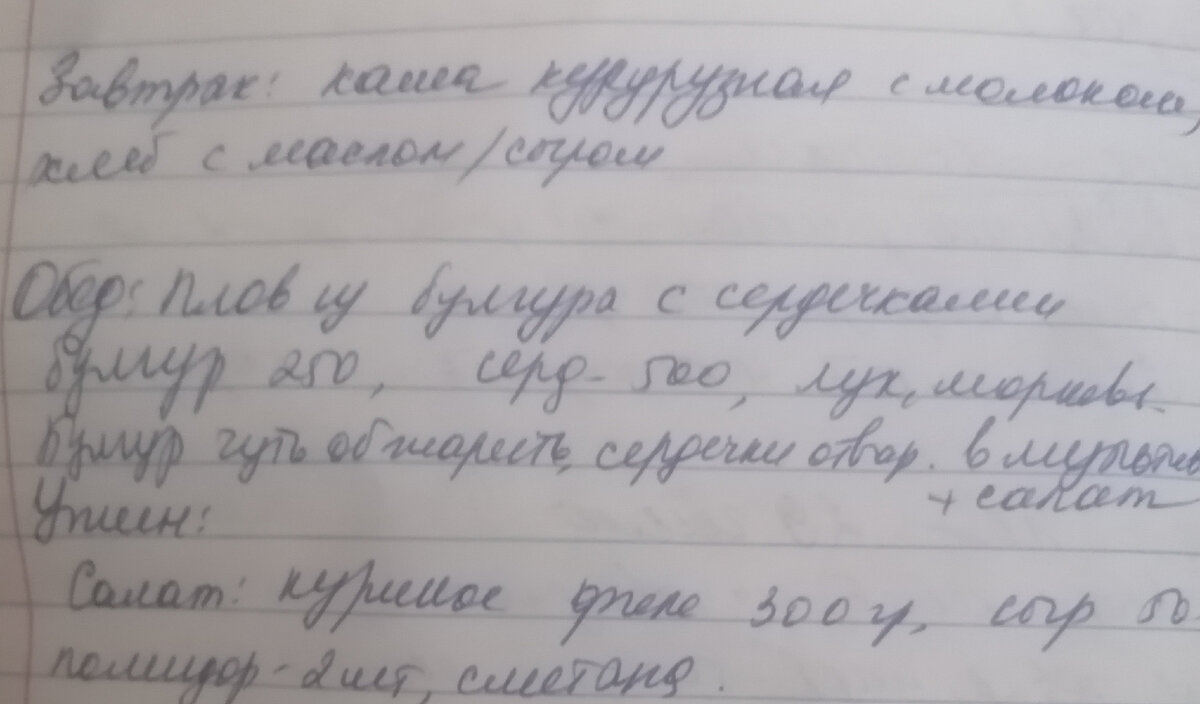 Завтрак: каша кукурузная с молоком,
хлеб с маслом/сыром
Обед: Плов из булгура с сердечками
Булгур 250, серд- 500, лук, морковь.
Булгур чуть обжарить, сердечки отвар. в мультив
+ салат
Ужин:
Салат: куриное филе 300 гр, сыр 50
помидор - 2 шт, сметана.